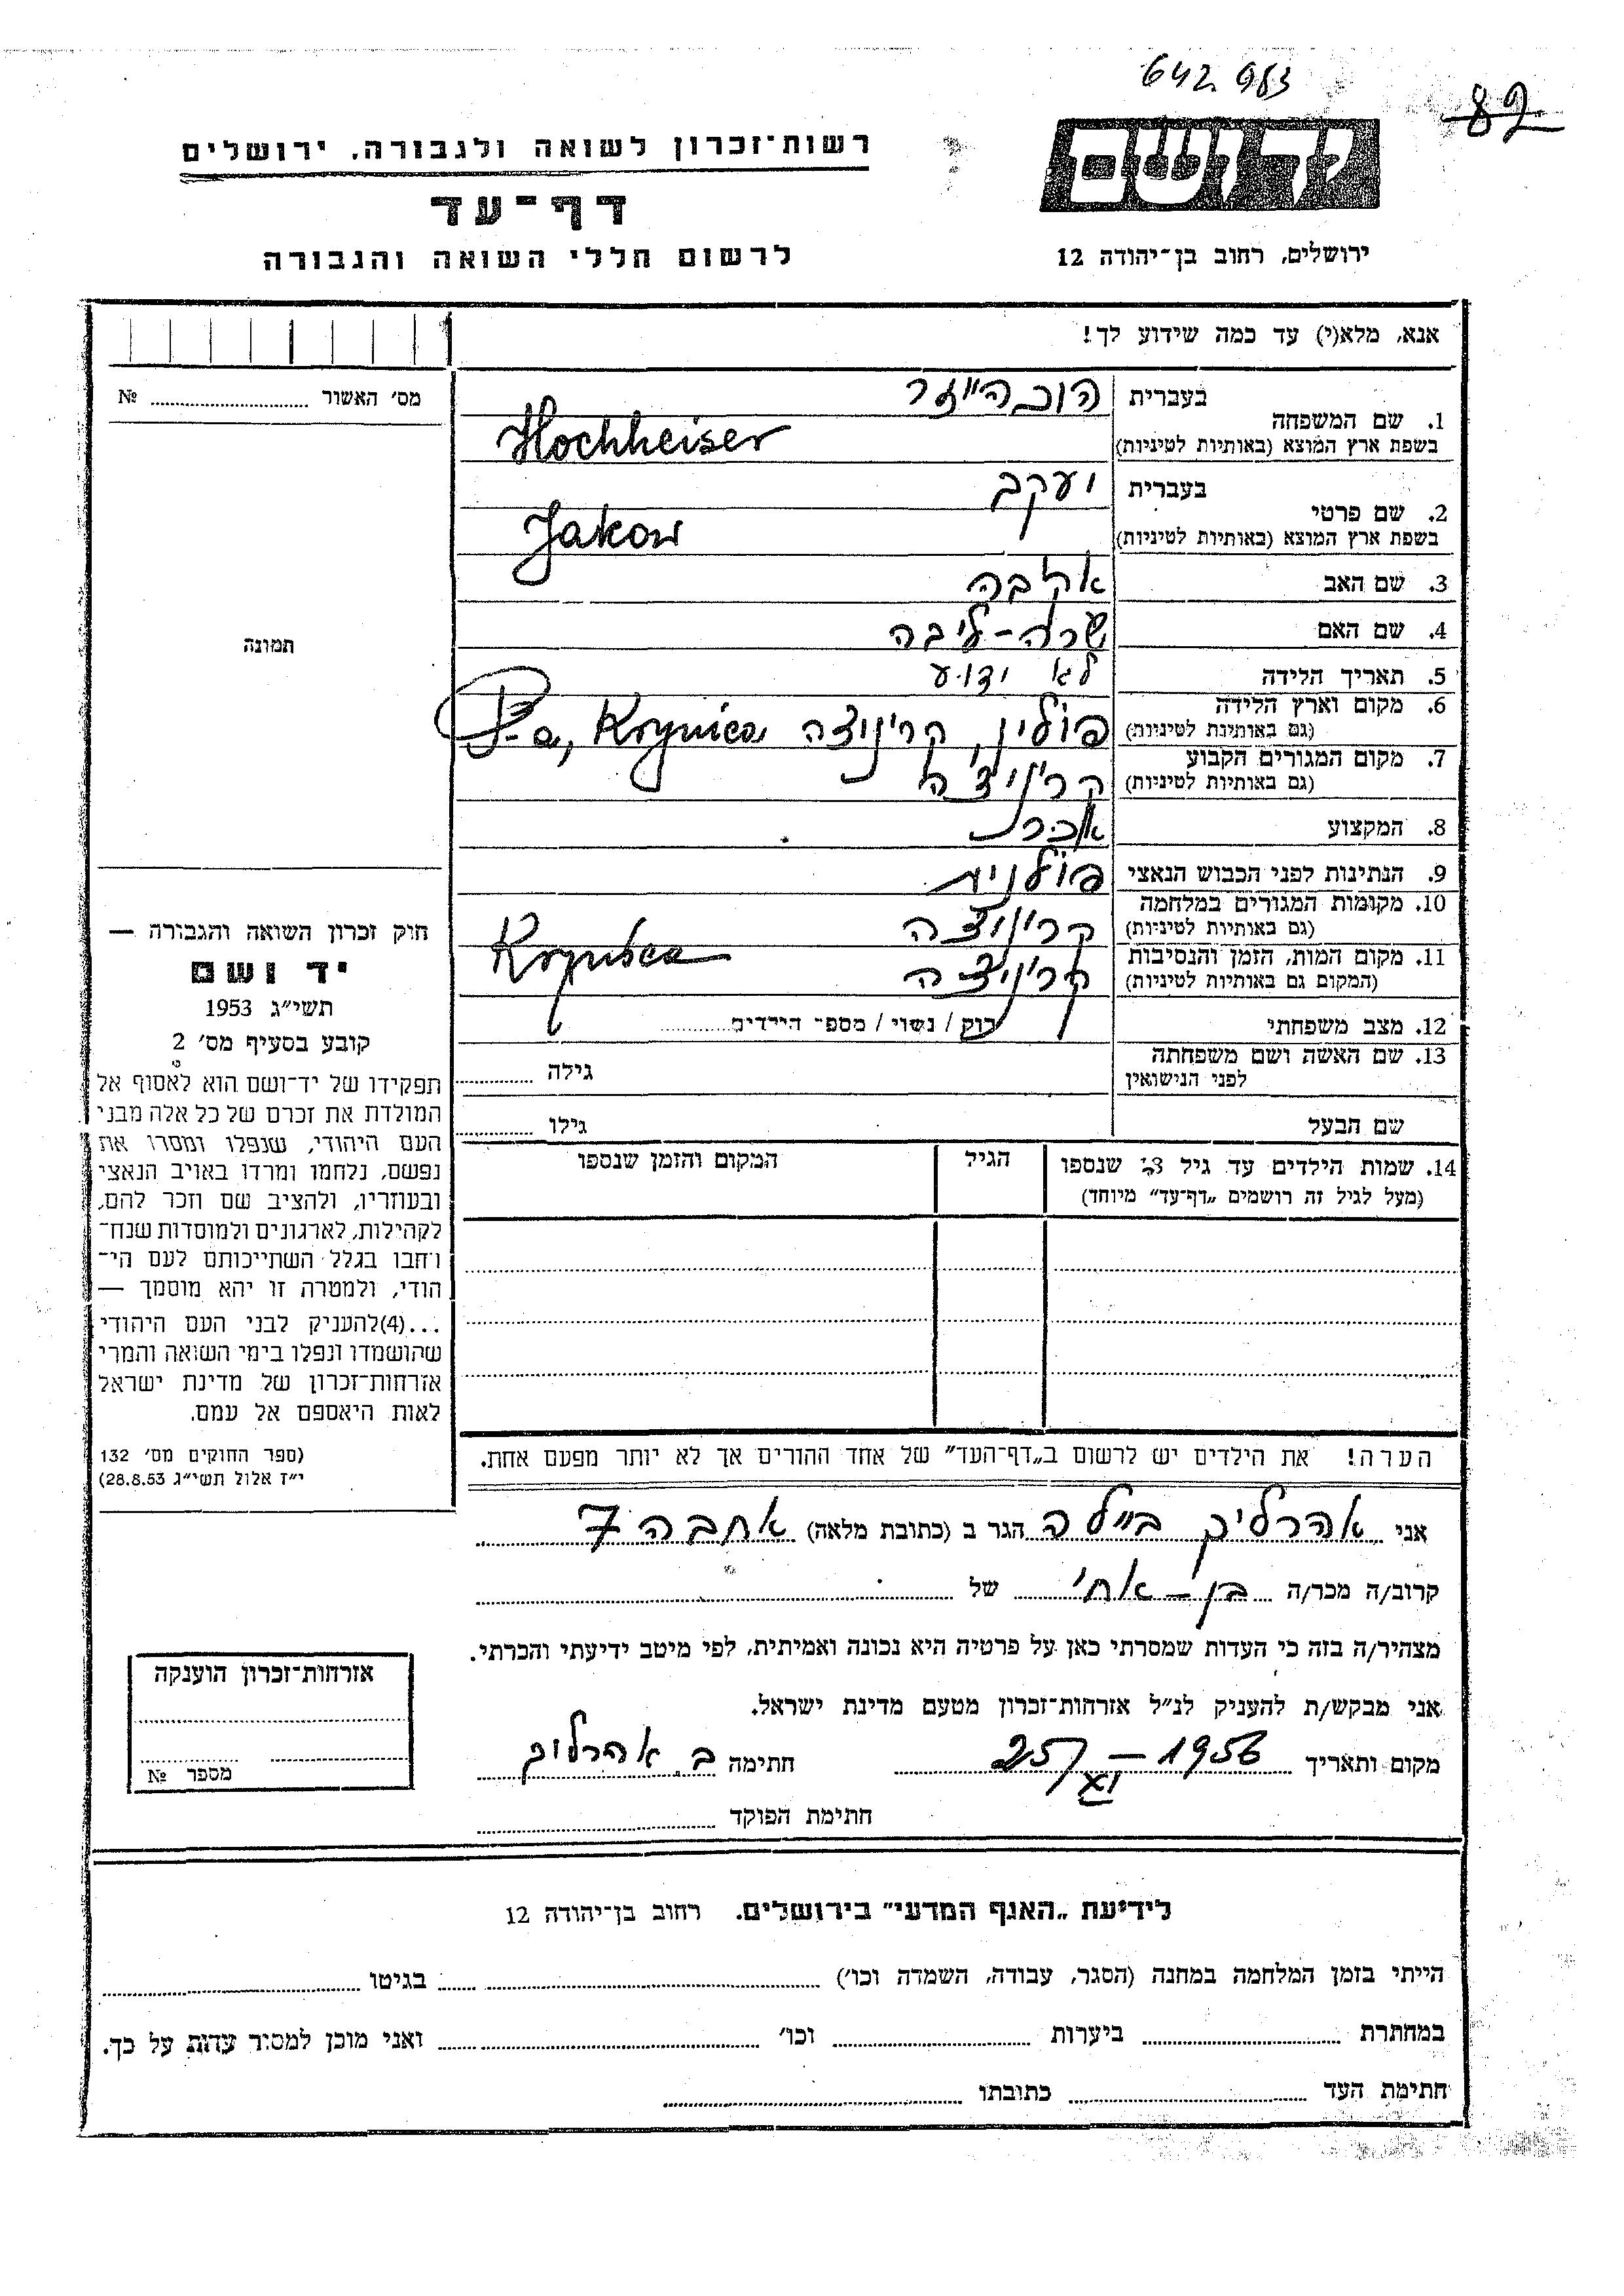 642983
82
יד ושם
רשות־זכרון לשואה ולגבורה, ירושלים
דף־עד
לרשום חללי השואה והגבורה
ירושלים, רחוב בן־יהודה 12
אנא, מלא(י) עד כמה שידוע לך!
מס׳ האשור № 
תמונה
1. שם המשפחה
בעברית הוכהייזר
בשפת ארץ המוצא (באותיות לטיניות) Hochheiser
2. שם פרטי
בעברית יעקב
בשפת ארץ המוצא (באותיות לטיניות) Jakow
3. שם האב
4. שם האם שרה-ליבה
5. תאריך הלידה לא ידוע
6. מקום וארץ הלידה
(גם באותיות לטיניות) פולין, קריניצה Krynica
7. מקום המגורים הקבוע
(גם באותיות לטיניות) קריניצה
8. המקצוע
9. הנתינות לפני הכבוש הנאצי פולנית
10. מקומות המגורים במלחמה
(גם באותיות לטיניות) קריניצה
11. מקום המות, הזמן והנסיבות
(המקום גם באותיות לטיניות) קריניצה Krynica
12. מצב משפחתי רוק / נשוי / מספר הילדים
13. שם האשה ושם משפחתה
לפני הנישואין גילה
שם הבעל גילו
14. שמות הילדים עד גיל 13 שנספו
(מעל לגיל זה רושמים „דף־עד” מיוחד)
הגיל
המקום והזמן שנספו
הערה! את הילדים יש לרשום ב„דף־העד” של אחד ההורים אך לא יותר מפעם אחת.
חוק זכרון השואה והגבורה —
יד ושם
תשי״ג 1953
קובע בסעיף מס׳ 2
תפקידו של יד־ושם הוא לאסוף אל
המולדת את זכרם של כל אלה מבני
העם היהודי, שנפלו ומסרו את
נפשם, נלחמו ומרדו באויב הנאצי
ובעוזריו, ולהציב שם וזכר להם,
לקהילות, לארגונים ולמוסדות שנח־
רבו בגלל השתייכותם לעם הי־
הודי, ולמטרה זו יהא מוסמך —
...(4)להעניק לבני העם היהודי
שהושמדו ונפלו בימי השואה והמרי
אזרחות־זכרון של מדינת ישראל
לאות היאספם אל עמם.
(ספר החוקים מס׳ 132
י״ז אלול תשי״ג 28.8.53)
אני אהרליך ביילה הגר ב (כתובת מלאה) אחבה 7
קרוב/ה מכר/ה בן-אחי של
מצהיר/ה בזה כי העדות שמסרתי כאן על פרטיה היא נכונה ואמיתית, לפי מיטב ידיעתי והכרתי.
אני מבקש/ת להעניק לנ״ל אזרחות־זכרון מטעם מדינת ישראל.
מקום ותאריך 25/VI-1956 חתימה ב. אהרליך
חתימת הפוקד
אזרחות־זכרון הוענקה
מספר №
לידיעת „האגף המדעי” בירושלים. רחוב בן־יהודה 12
הייתי בזמן המלחמה במחנה (הסגר, עבודה, השמדה וכו׳) בגיטו
במחתרת ביערות וכו׳ ואני מוכן למסיר עדות על כך.
חתימת העד כתובתו